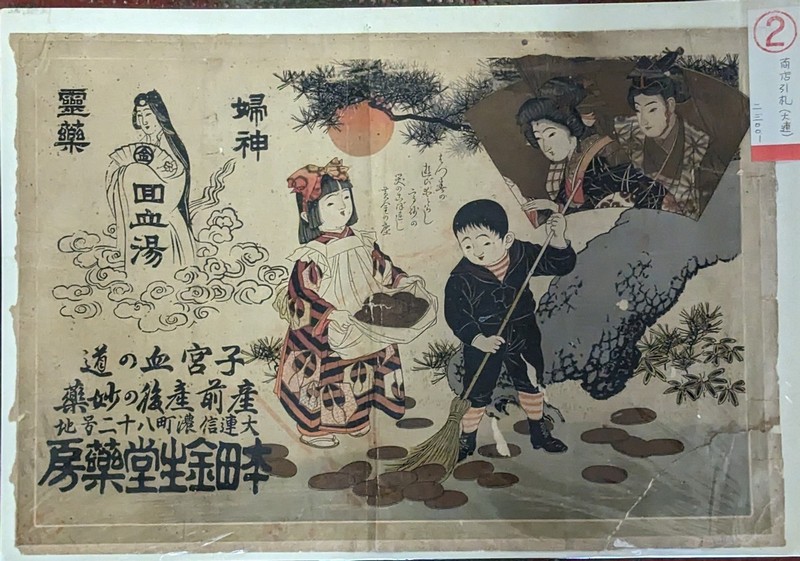 ②
商店引札(大連)
二三〇〇一
婦神
靈藥
金
回血湯
子宮血の道
産前産後の妙藥
大連信濃町八十二号地
本田金生堂藥房